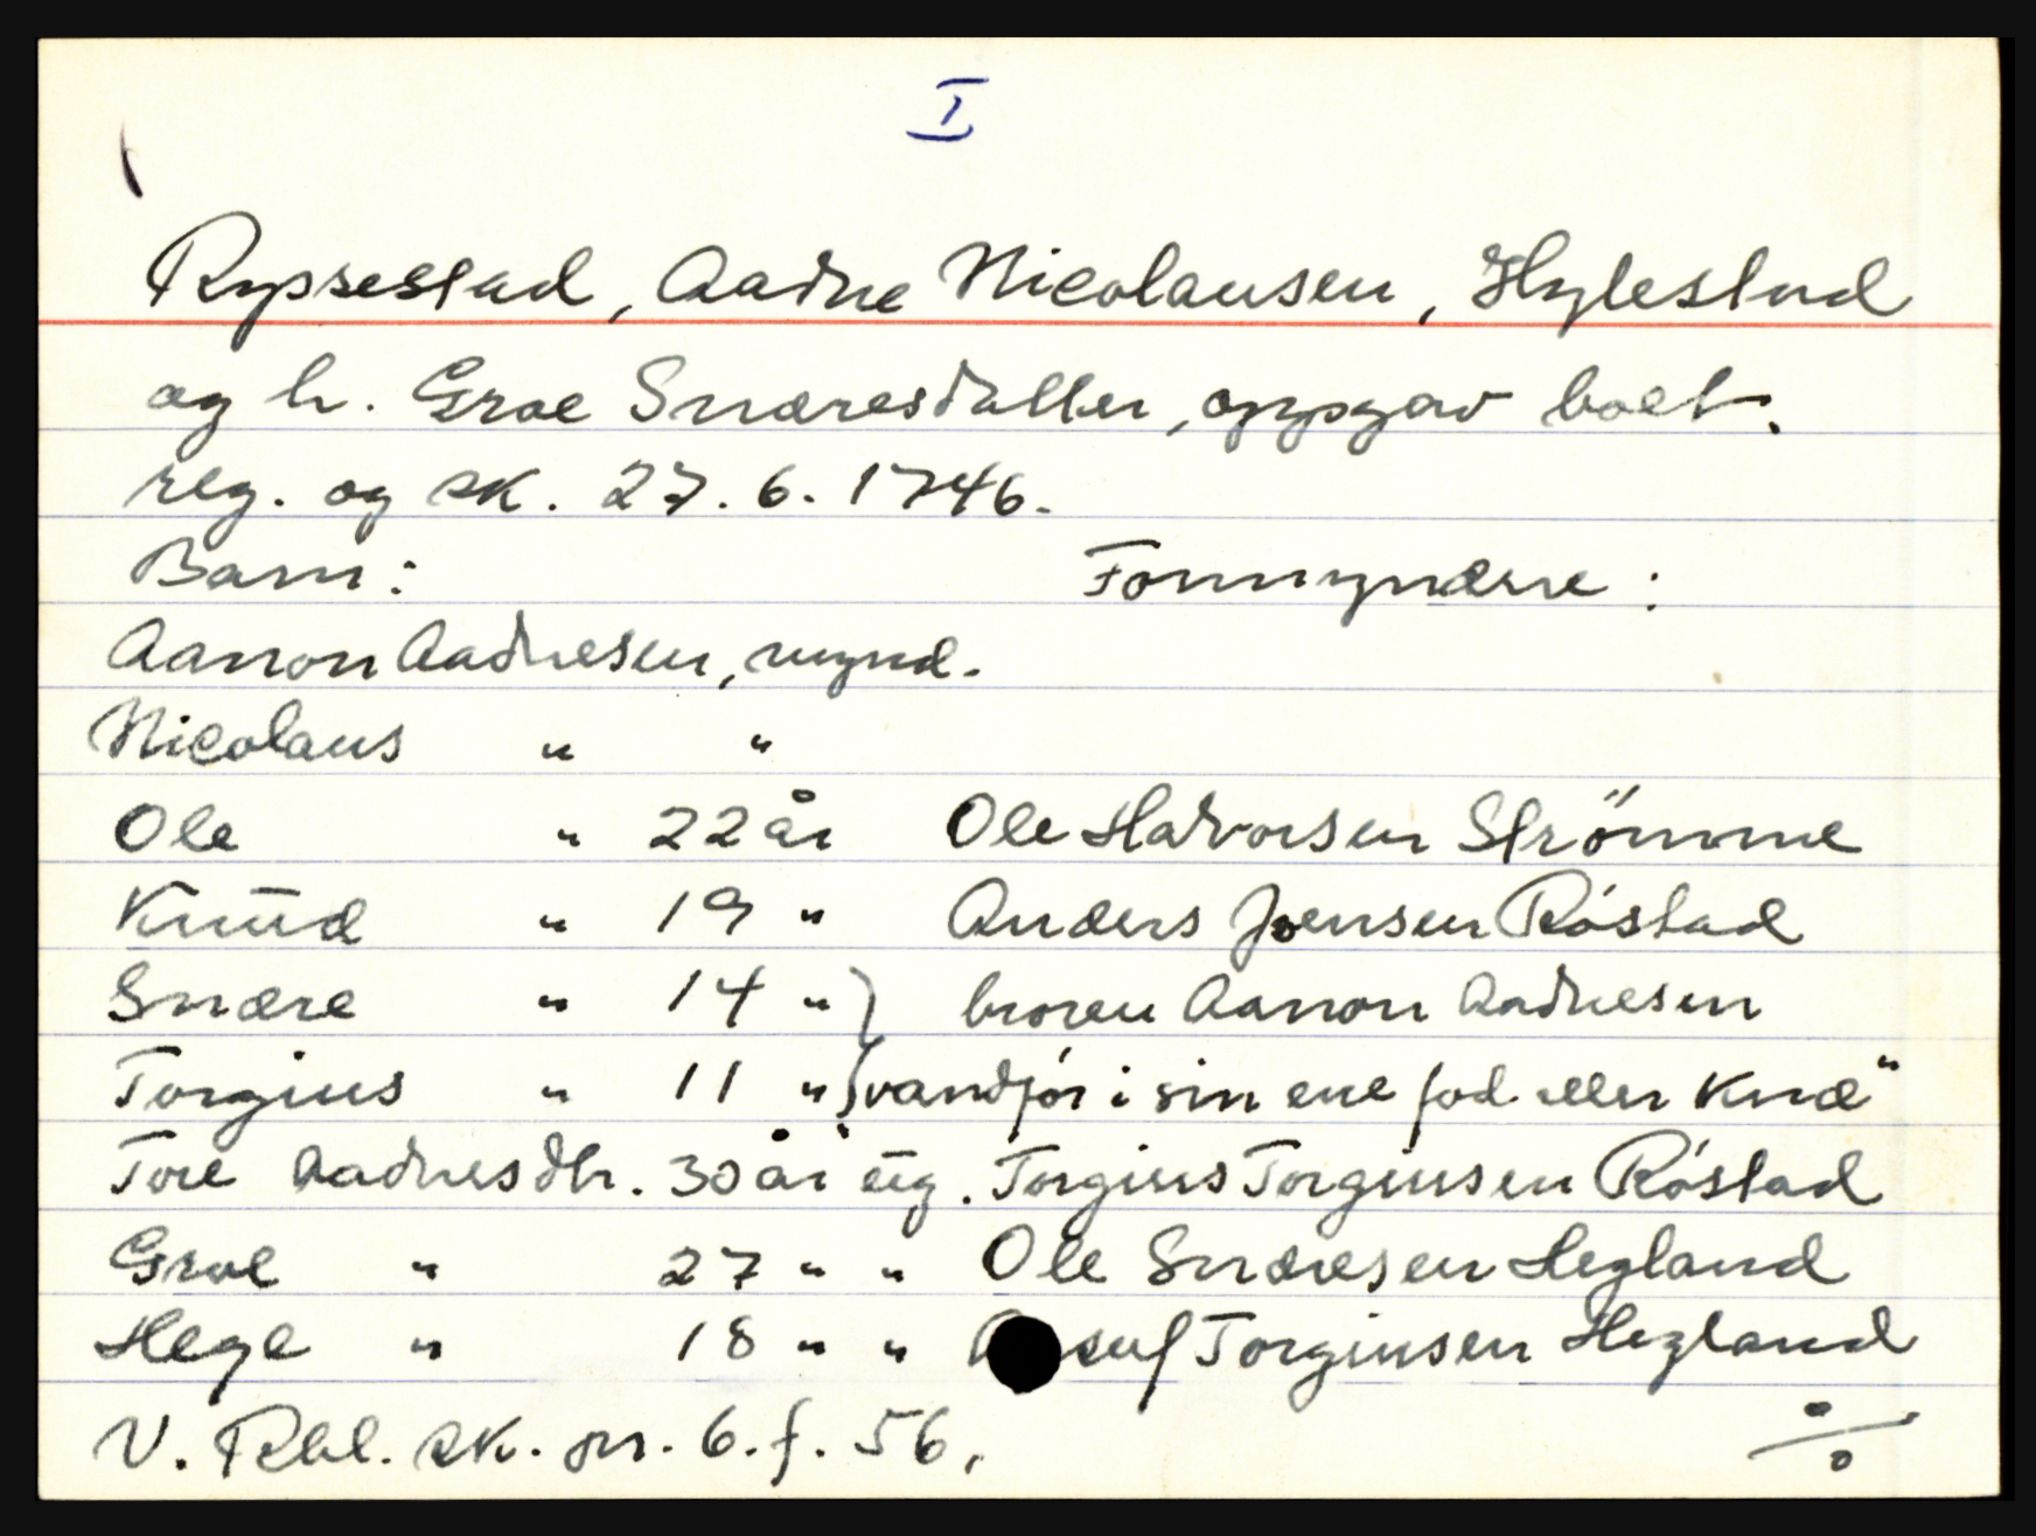 I
Rypsestad, Aadne Nicolausen, Hylestad
og h. Groe Snaresdatter, oppgav boet.
reg. og sk. 27.6.1746.
Barn: Formyndere:
Aanon Aadnesen, mynd.
Nicolaus " "
Ole " 22 år Ole Halvorsen Strömme
Knud " 19 " Anders Joensen Róstad
Snare " 14 " } broren Aanon Aadnesen
Torgius " 11 " } vandfór i sin ene fod eller Knæ"
Tore Aadnesdtr. 30 år ug. Torgius Torgiussen Róstad
Groe " 27 " " Ole Snaresen Hegland
Hege " 18 " " Torgiussen Hegland
V. Rbl. sk. pr. 6. f. 56.